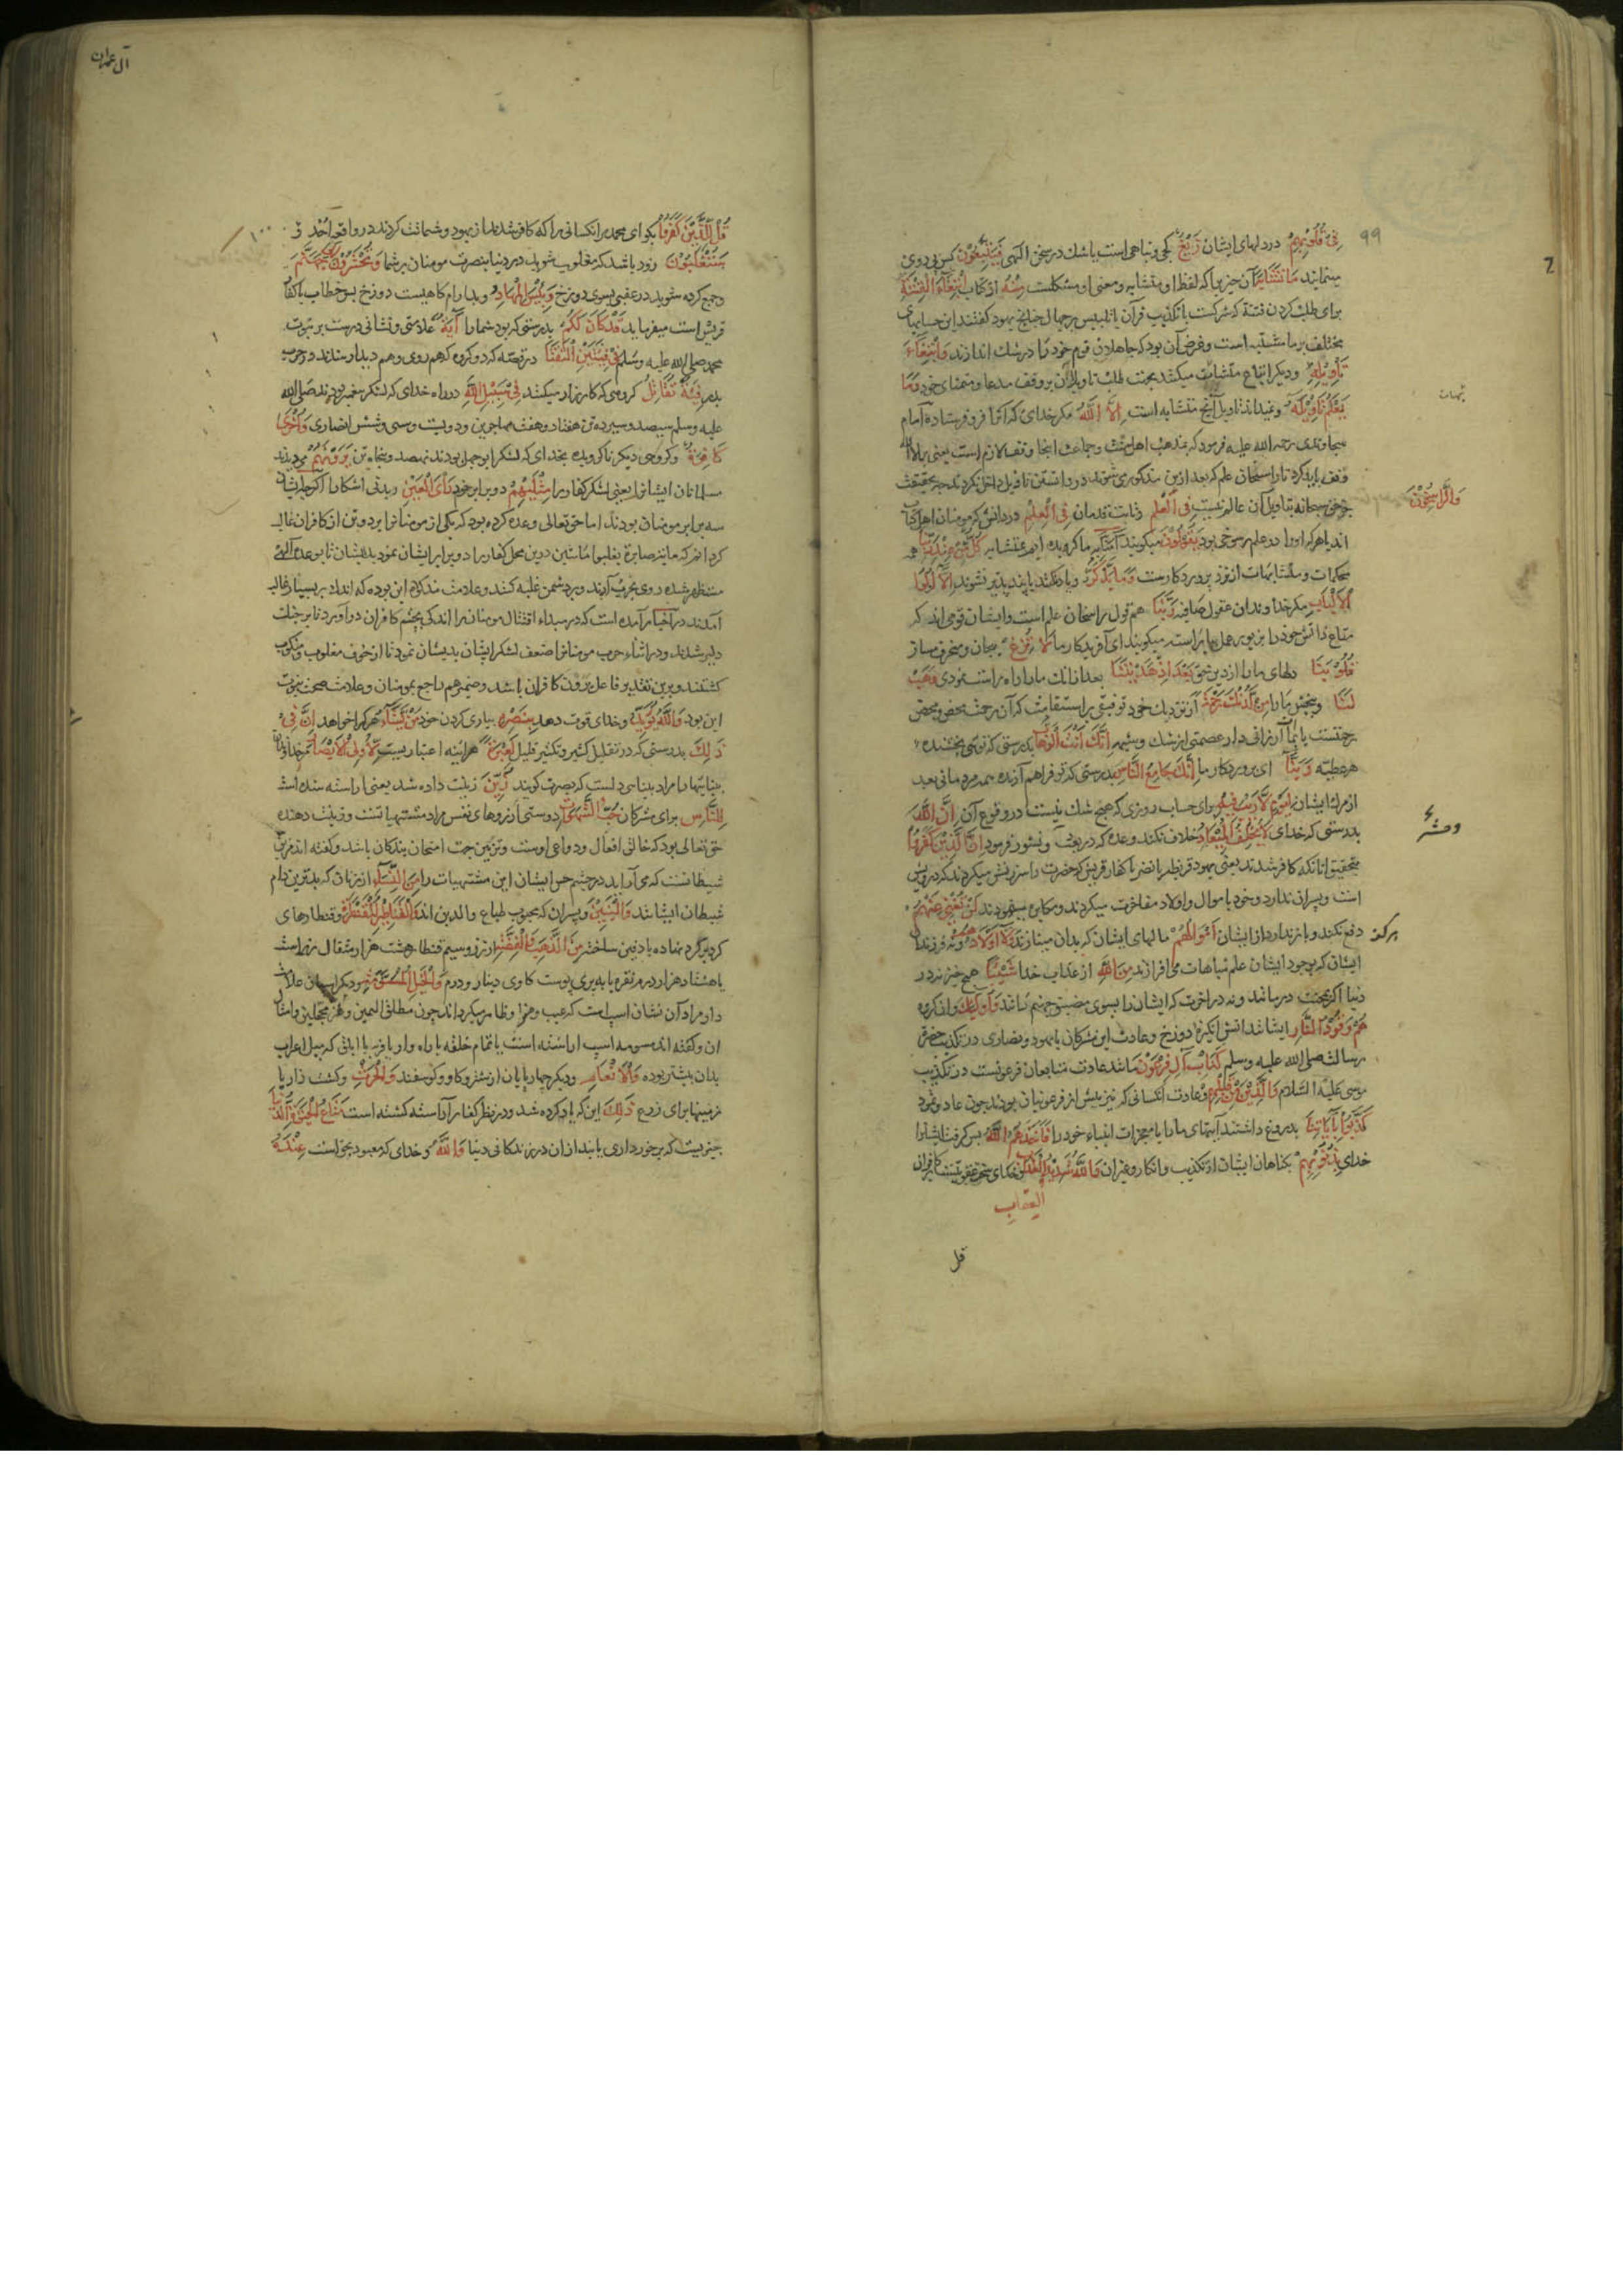 ۹۹
فِی قُلُوبِهِمْ در دلهای ایشان زَیْغٌ کجی و تباهی است یا شک در سخن الهی فَیَتَّبِعُونَ پس پی روی
مینمایند مَا تَشَابَهَ آن چیز را که لفظ او متشابه و معنی او مشکلست مِنْهُ از کتاب ابْتِغَاءَ الْفِتْنَةِ
برای طلب کردن فتنه که شرکت یا تکذیب قرآن یا تلبیس بر جهال چنانچه یهود گفتند این حسابهای
مختلف بر ما مشتبه است و غرض آن بود که جاهلان قوم خود را در شک اندازند وَابْتِغَاءَ
تَأْوِیلِهِ و دیگر اتباع متشابهات میکنند بجهت طلب تاویل آن بر وفق مدعا و متمنای خود وَمَا
یَعْلَمُ تَأْوِیلَهُ و نمیداند تاویل آنچه متشابه است إِلَّا اللَّهُ مگر خدای که آنرا فرو فرستاده امام
سجاوندی رحمه الله علیه فرمود که بمذهب اهل سنت و جماعت اینجا وقف لازم است یعنی بر الا الله
وقف باید کرد تا راسخان علم که بعد ازین مذکور می شوند در دانستن تاویل داخل نگردند چه بحقیقت
وَالرَّاسِخُونَ
جز حق سبحانه بتاویل آن عالم نیست فِی الْعِلْمِ و ثابت قدمان فِی الْعِلْمِ در دانش که مومنان اهل کتاب
اند یا هر که او را در علم رسوخی بود یَقُولُونَ میگویند آمَنَّا بِهِ ما گرویده ایم بمتشابه كُلٌّ مِنْ عِنْدِ رَبِّنَا همه
محکمات و متشابهات از نزد پروردگارست وَمَا یَذَّكَّرُ و یاد نکند یا پند پذیر نشوند إِلَّا أُولُوا
الْأَلْبَابِ مگر خداوندان عقول صافیه رَبَّنَا هم قول راسخان علم است و ایشان قومی اند که
متاع دانش خود را بزیور عمل بیاراسته میگویند ای آفریدگار ما لَا تُزِغْ مپیچان و منحرف مساز
قُلُوبَنَا دلهای ما را از دین حق بَعْدَ إِذْ هَدَیْتَنَا بعد از انک ما را راه راست نمودی وَهَبْ
لَنَا و ببخش ما را مِنْ لَدُنْكَ رَحْمَةً از نزدیک خود توفیقی بر استقامت که آن رحمت محض و محض
رحمتست یا بما ارزانی دار عصمتی از شک و شبهه إِنَّكَ أَنْتَ الْوَهَّابُ بدرستی که توئی بخشنده
هر عطیه رَبَّنَا ای پروردگار ما إِنَّكَ جَامِعُ النَّاسِ بدرستی که تو فراهم آرنده همه مردمانی بعد
از مرگ ایشان لِیَوْمٍ لَا رَیْبَ فِیهِ برای حساب روزی که هیچ شک نیست در وقوع آن إِنَّ اللَّهَ
بدرستی که خدای لَا یُخْلِفُ الْمِیعَادَ خلاف نکند وعده که در بعث و نشور فرمود إِنَّ الَّذِینَ كَفَرُوا
بتحقیق انانکه کافر شدند یعنی یهود قریظه و نضیر یا کفار قریش که حضرت را سرزنش میکردند که درویش
است و پسران ندارد و خود باموال و اولاد مفاخرت میکردند و مکابره مینمودند لَنْ تُغْنِیَ عَنْهُمْ
هرگز
دفع نکند و باز ندارد از ایشان أَمْوَالُهُمْ مالهای ایشان که بدان مینازند وَلَا أَوْلَادُهُمْ و نه فرزندان
ایشان که بوجود ایشان علم مباهات می افرازند مِنَ اللَّهِ از عذاب خدا شَیْئًا هیچ چیز نه در
دنیا اگر بمحنت درمانند و نه در آخرت که ایشان را بسوی مضیق جهنم رسانند وَأُولَئِكَ و آن گروه
هُمْ وَقُودُ النَّارِ ایشانند آتش انگیزه دوزخ و عادت این مشرکان یا یهود و نصاری در تکذیب حضرت
رسالت صلی الله علیه وسلم كَدَأْبِ آلِ فِرْعَوْنَ مانند عادت متابعان فرعونست در تکذیب
موسی علیه السلام وَالَّذِینَ مِنْ قَبْلِهِمْ و عادت آنکسانی که نیز پیش از فرعونیان بودند چون عاد و ثمود
كَذَّبُوا بِآیَاتِنَا بدروغ داشتند آیتهای ما را یا معجزات انبیاء خود را فَأَخَذَهُمُ اللَّهُ پس گرفت ایشانرا
خدای بِذُنُوبِهِمْ بگناهان ایشان از تکذیب و انکار و غیر آن وَاللَّهُ شَدِیدُ الْعِقَابِ و خدای سخت عقوبتست کافران
العقاب
قل
آل عمران
۱۰۰
قُلْ لِلَّذِینَ كَفَرُوا بگو ای محمد مر آنکسانی را که کافر شده اند از یهود و شماتت کردند در واقعه احد
سَتُغْلَبُونَ زود باشد که مغلوب شوید در دنیا بنصرت مومنان بر شما وَتُحْشَرُونَ إِلَى جَهَنَّمَ
و جمع کرده شوید در عقبی بسوی دوزخ وَبِئْسَ الْمِهَادُ و بد آرام گاهیست دوزخ پس خطاب با کفار
قریش است میفرماید قَدْ كَانَ لَكُمْ بدرستی که بود شما را آیَةٌ علامتی و نشانی درست بر نبوت
محمد صلی الله علیه وسلم فِی فِئَتَیْنِ الْتَقَتَا در قصه که دو گروه که هم روی و هم دیدار شدند در حرب
بدر فِئَةٌ تُقَاتِلُ گروهی که کارزار میکنند فِی سَبِیلِ اللَّهِ در راه خدای که لشکر پیغمبر بودند صلی الله
علیه وسلم سیصد و سیزده تن هفتاد و هفت مهاجرین و دویست و سی و شش انصاری وَأُخْرَى
كَافِرَةٌ و گروهی دیگر ناگرویده بخدای که لشکر ابوجهل بودند نهصد و پنجاه تن یَرَوْنَهُمْ می دیدند
مسلمانان ایشانرا یعنی لشکر کفار را مِثْلَیْهِمْ دو برابر خود رَأْیَ الْعَیْنِ دیدنی آشکارا اگرچه ایشان
سه برابر مومنان بودند اما حق تعالی وعده کرده بود که یکی از مومنانرا بر دو تن از کافران غالب
مستظهر شده روی بحرب آرند و بر دشمن غلبه کنند و علامت مذکوره این بوده که اندک بر بسیار غالب
آمدند در اخبار آمده است که در مبداء اقتتال مومنان را اندکی بچشم کافران در آورد تا بر جنک
دلیر شدند و در اثناء حرب مومنانرا ضعف لشکر ایشان بدیشان نمود تا از خوف مغلوب و منکوب
گشتند و برین تقدیر فاعل یرون کافران باشد و ضمیر هم راجع بمومنان و علامت صحت نبوت
این بود وَاللَّهُ یُؤَیِّدُ و خدای قوت دهد بِنَصْرِهِ بیاری کردن خود مَنْ یَشَاءُ هر که را خواهد إِنَّ فِی
ذَلِكَ بدرستی که در تقلیل کثیر و تکثیر قلیل لَعِبْرَةً هر آیینه اعتباریست لِأُولِی الْأَبْصَارِ مر خداوندان
بیناییها را مراد بینایی دلست که بصیرت گویند زُیِّنَ زینت داده شد یعنی آراسته شده است
لِلنَّاسِ برای مشرکان حُبُّ الشَّهَوَاتِ دوستی آرزوهای نفس مراد مشتهیاتست و زینت دهنده
حق تعالی بود که خالق افعال و دواعی اوست و تزیین جهت امتحان بندگان باشد و گفته اند مزین
شیطانست که می آراید در چشم حس ایشان این مشتهیات را مِنَ النِّسَاءِ از زنان که بدترین دام
شیطان ایشانند وَالْبَنِینَ و پسران که محبوب طباع والدین اند وَالْقَنَاطِیرِ الْمُقَنْطَرَةِ و قنطارهای
گرد بر گرد نهاده یا دفین ساخته مِنَ الذَّهَبِ وَالْفِضَّةِ از زر و سیم قنطار هشت هزار مثقال زر است
یا هشتاد هزار درم نقره یا به پری پوست گاوی دینار و درم وَالْخَیْلِ الْمُسَوَّمَةِ و دیگر اسپان علامت
دار مراد آن نشان اسپ است که عیب و هنر او ظاهر میگرداند چون مطلق الیمین و محجلین و امثال
آن و گفته اند مسومه اسپ آراسته است
بدان بیشتر بوده وَالْأَنْعَامِ و دیگر چهارپایان از شتر و گاو و گوسفند وَالْحَرْثِ و کشت زار یا
زمینها برای زرع ذَلِكَ این که یاد کرده شد و در نظر کفار آراسته گشته است مَتَاعُ الْحَیَوةِ الدُّنْیَا
چیزیست که برخورداری یابند از آن در زندگانی دنیا وَاللَّهُ و خدای که معبود بحق است عِنْدَهُ